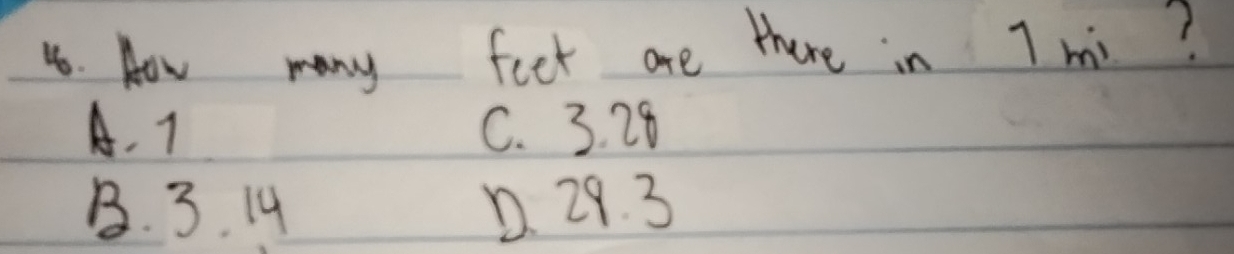 46. How many feet are there in 1 mi ?
A. 1 C. 3.28
B. 3.14 D. 29.3